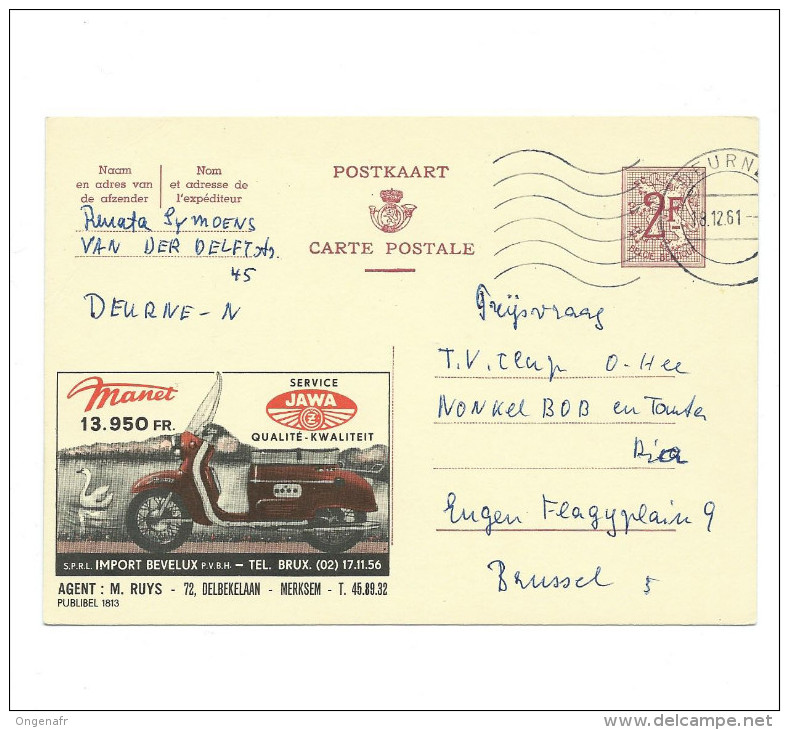 Naam
en adres van
de afzender
Nom
et adresse de
l'expéditeur
POSTKAART
CARTE POSTALE
2F
BELGIE BELGIQUE
EURN
18.12.61
Renata Symoens
VAN DER DELFTstr.
45
DEURNE-N
Prijsvraag
T.V. Clup O-Hee
NONKEL BOB en Tante
Ria
Eugen Flagyplain 9
Brussel 5
Manet
13.950 FR.
SERVICE
JAWA
CZ
QUALITÉ-KWALITEIT
S.P.R.L. IMPORT BEVELUX P.V.B.H. – TEL. BRUX. (02) 17.11.56
AGENT : M. RUYS - 72, DELBEKELAAN - MERKSEM - T. 45.89.32
PUBLIBEL 1813
Ongenafr
www.delcampe.net